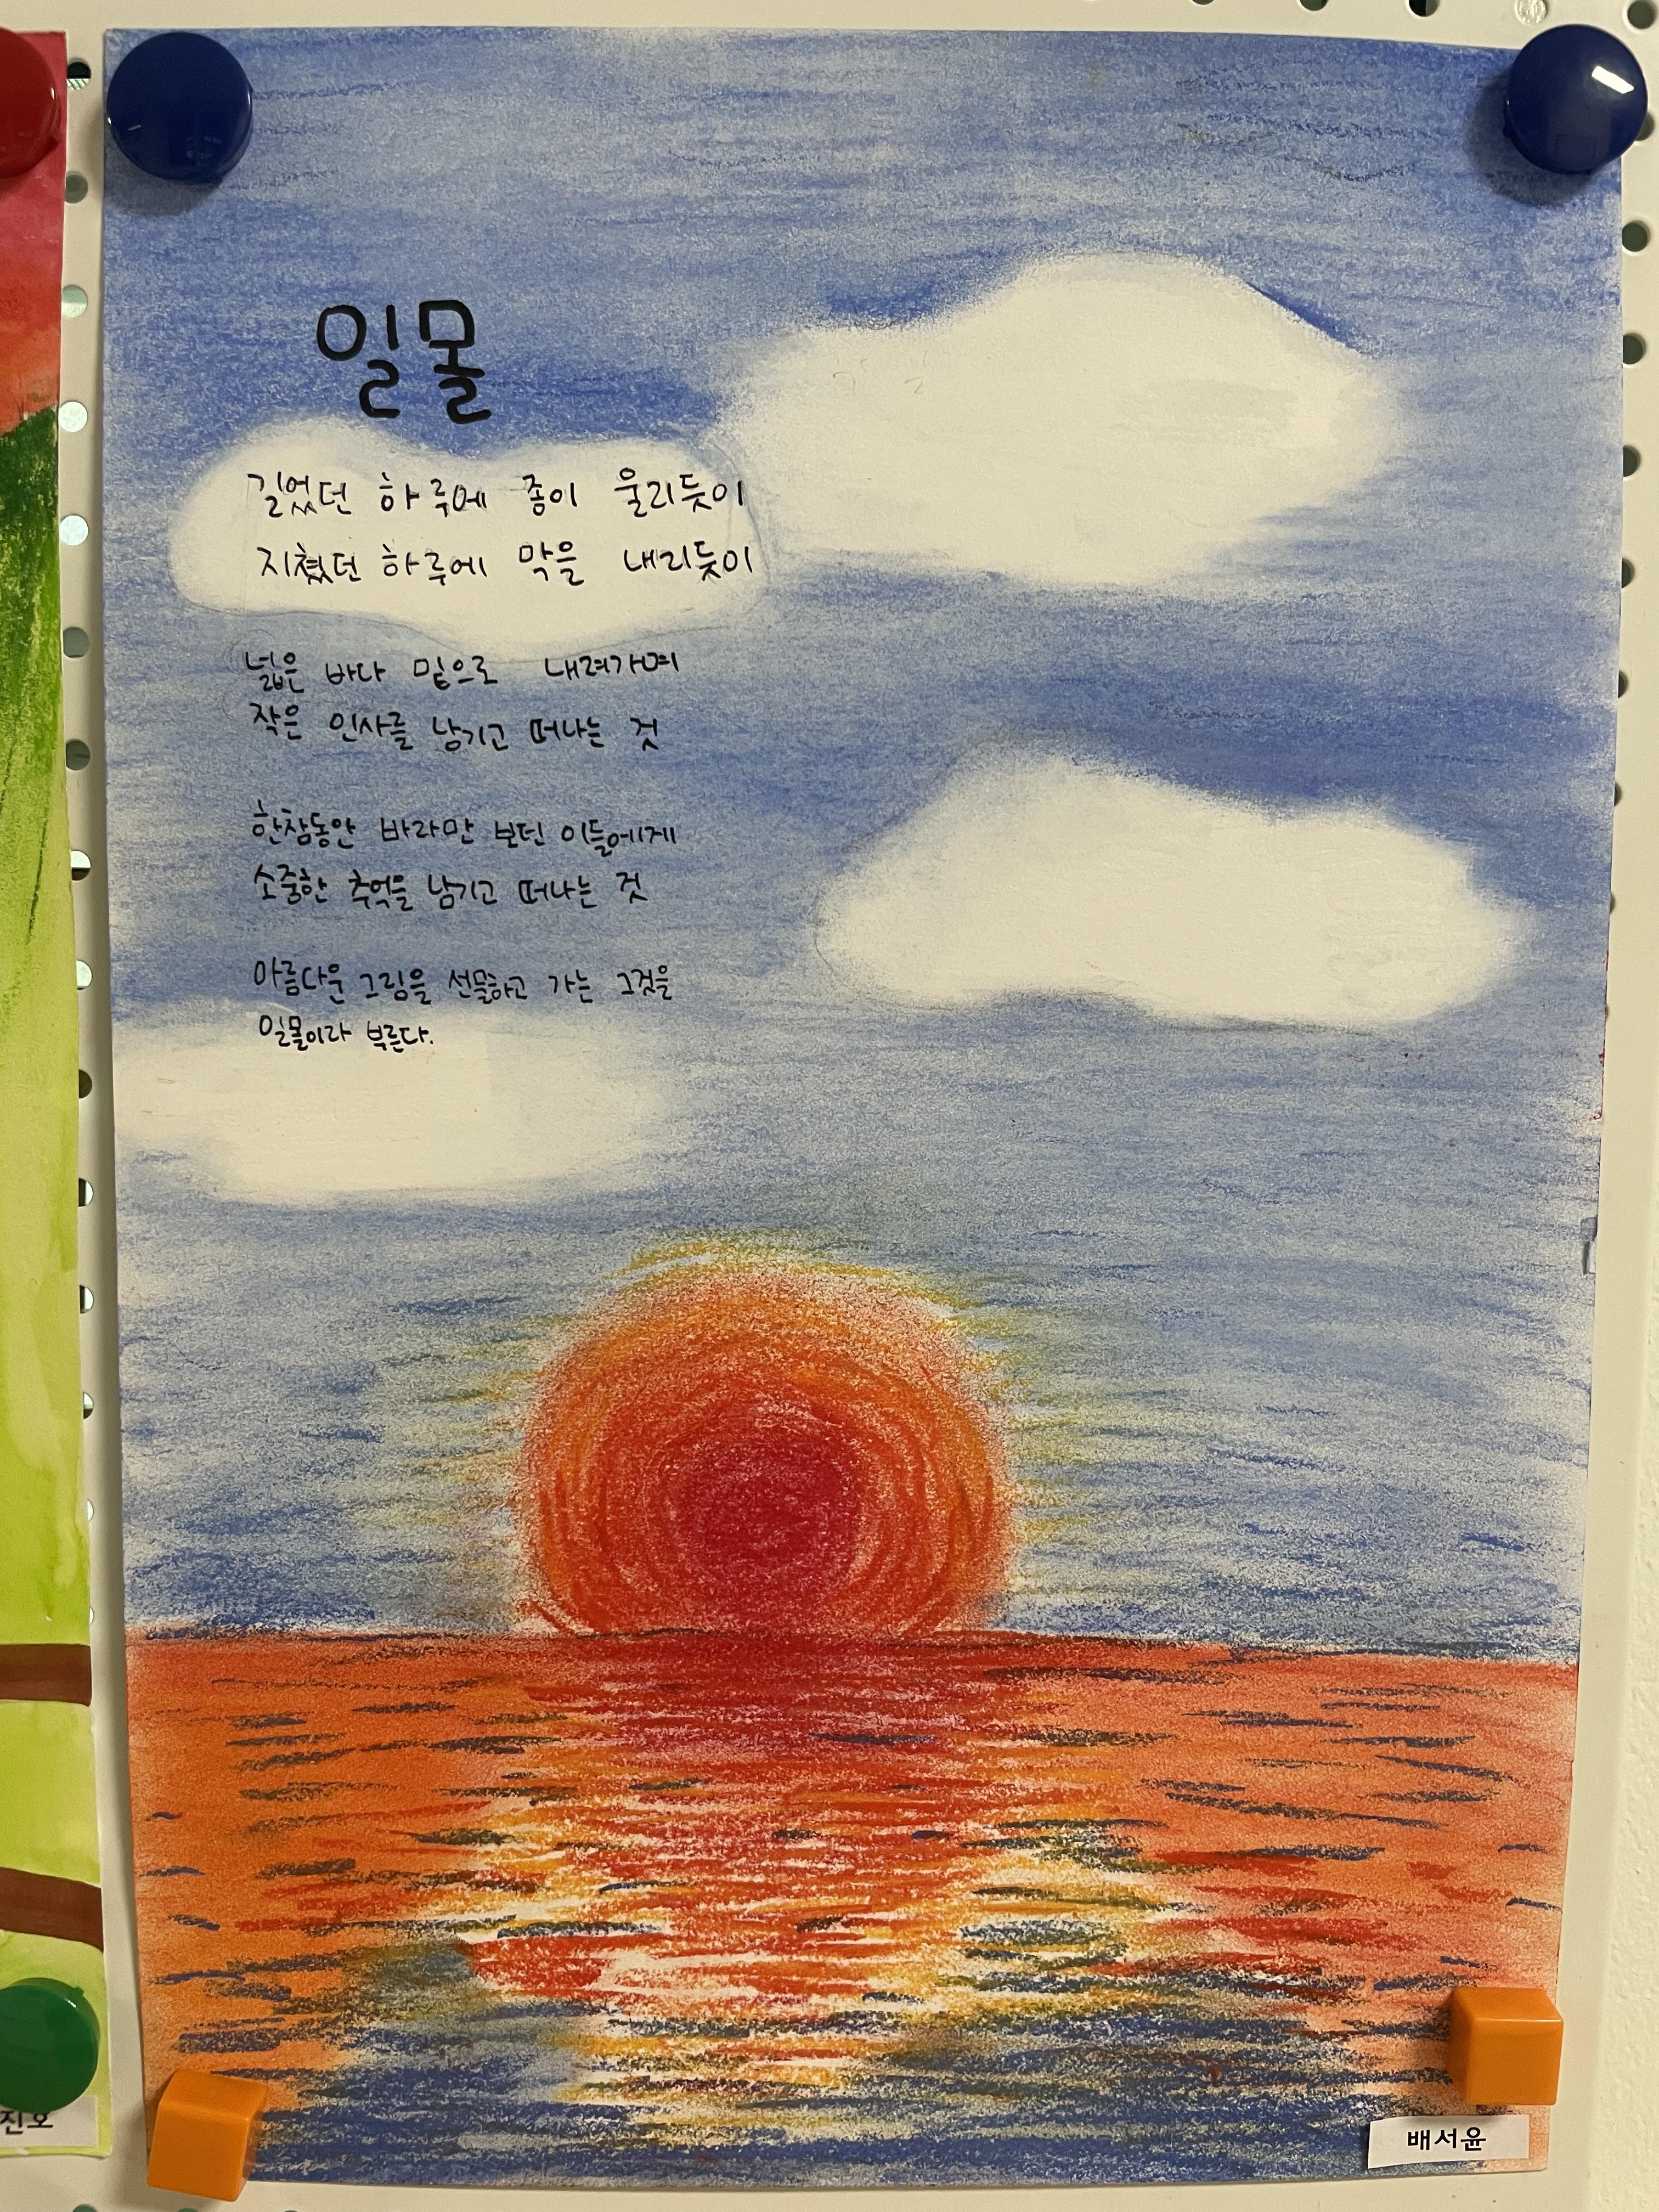 일몰
길었던 하루에 종이 울리듯이
지쳤던 하루에 막을 내리듯이
넓은 바다 밑으로 내려가며
작은 인사를 남기고 떠나는 것
한참동안 바라만 보던 이들에게
소중한 추억을 남기고 떠나는 것
아름다운 그림을 선물하고 가는 그것을
일몰이라 부른다.
배서윤
진오